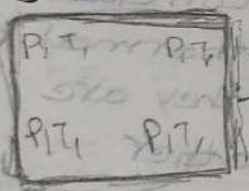 P₁ T₁ P₁ T₁
P₁ T₁ P₁ T₁